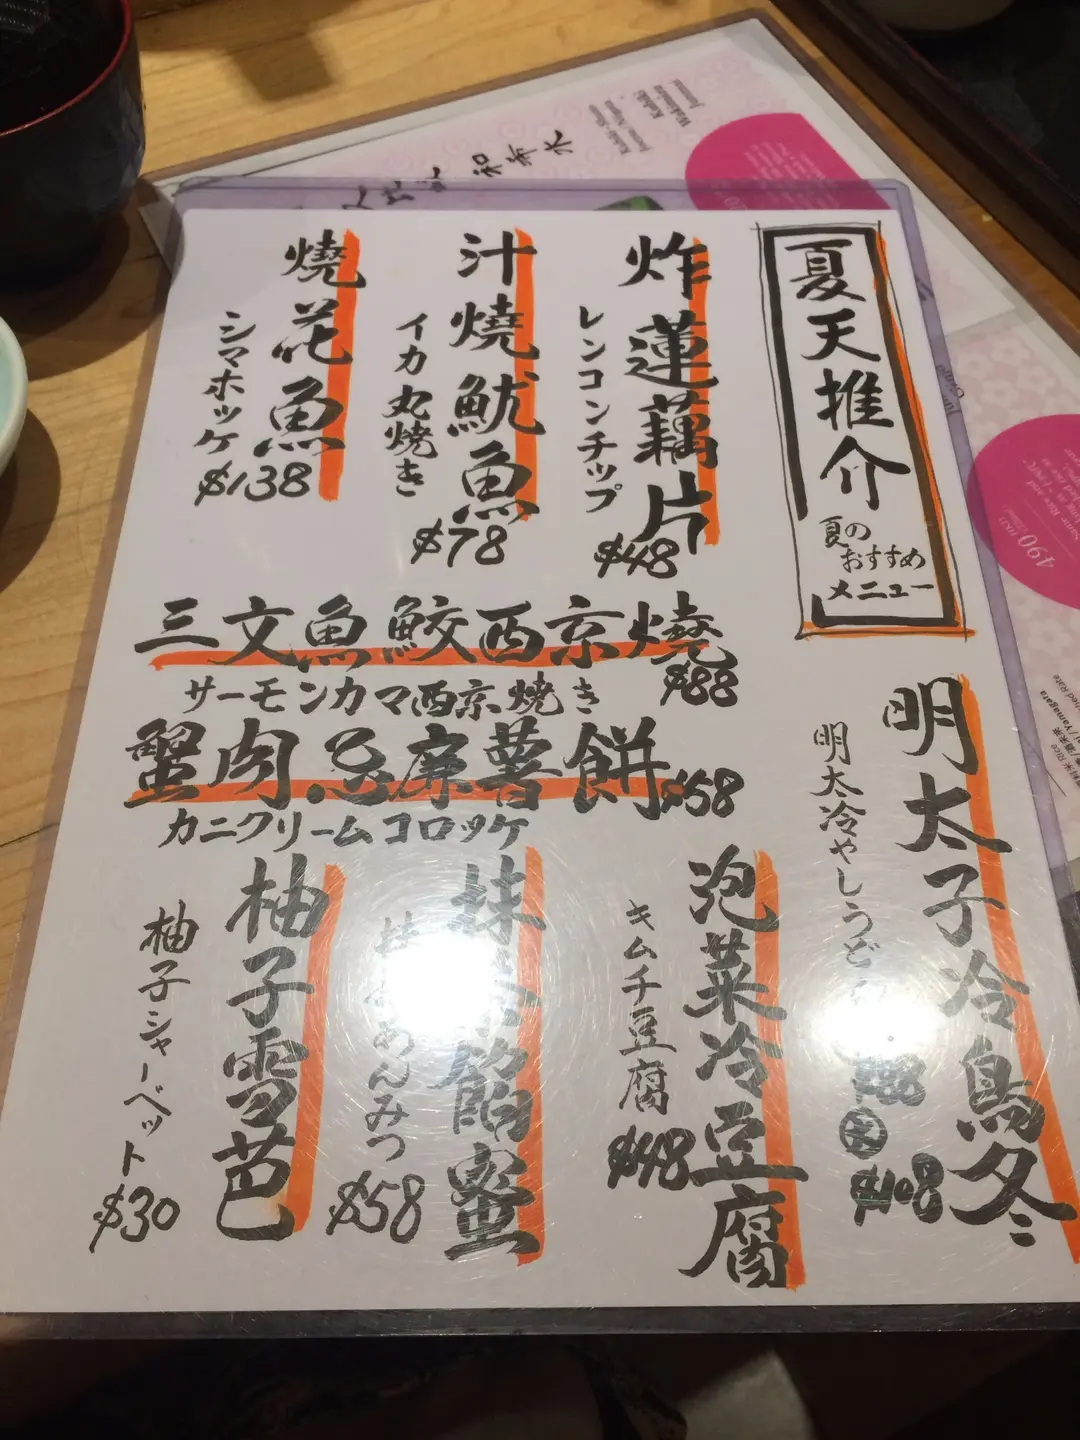 夏天推介
夏の
おすすめ
メニュー
炸蓮藕片
レンコンチップ
$48
汁燒魷魚
イカ丸焼き
$78
燒花魚
シマホッケ
$138
三文魚鮫西京燒
$88
サーモンカマ西京焼き
蟹肉忌廉薯餅
$58
カニクリームコロッケ
明太子冷烏冬
明太冷やしうど
$88
大
$108
泡菜冷豆腐
キムチ豆腐
$48
抹茶餡蜜
抹茶あんみつ
$58
柚子雪芭
柚子シャーベット
$30
490